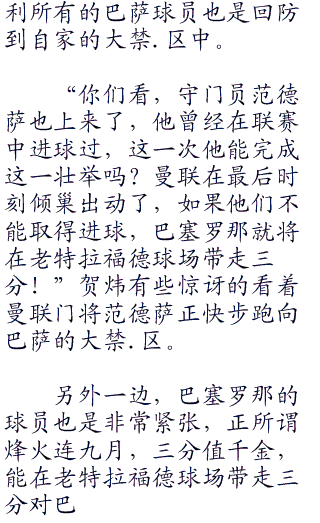 利所有的巴萨球员也是回防
到自家的大禁.区中。
“你们看，守门员范德
萨也上来了，他曾经在联赛
中进球过，这一次他能完成
这一壮举吗？曼联在最后时
刻倾巢出动了，如果他们不
能取得进球，巴塞罗那就将
在老特拉福德球场带走三
分！”贺炜有些惊讶的看着
曼联门将范德萨正快步跑向
巴萨的大禁.区。
另外一边，巴塞罗那的
球员也是非常紧张，正所谓
烽火连九月，三分值千金，
能在老特拉福德球场带走三
分对巴